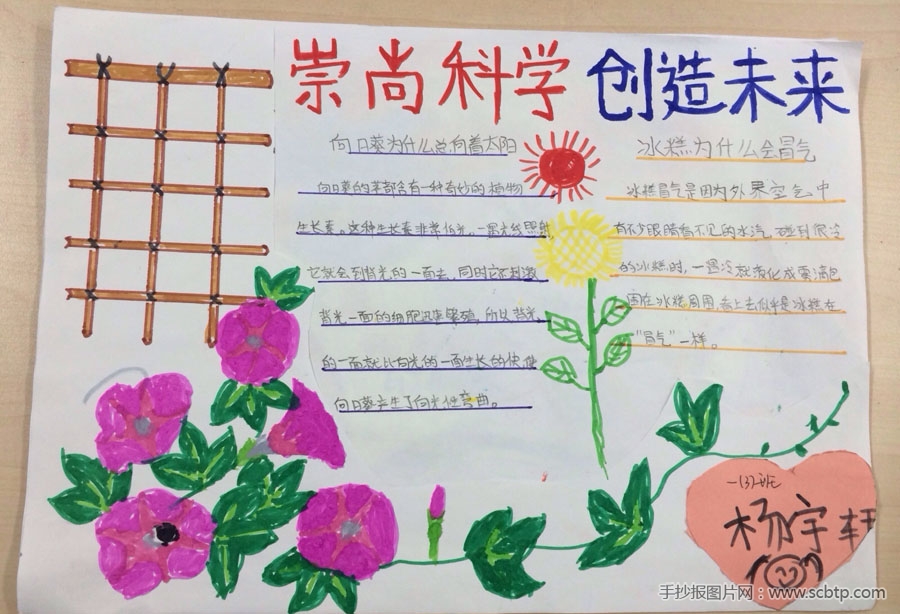 崇尚科学 创造未来
向日葵为什么总向着太阳
向日葵的茎部含有一种奇妙的植物
生长素。这种生长素非常怕光。一遇光线照射
它就会到背光的一面去,同时它刺激
背光一面的细胞迅速繁殖,所以背光
的一面就比向光的一面生长的快,使
向日葵产生了向光性弯曲。
冰糕为什么会冒气
冰糕冒气是因为外界空气中
有不少眼睛看不见的水汽,碰到很冷
的冰糕时,一遇冷就液化成雾滴包
围在冰糕周围,看上去似乎是冰糕在
"冒气"一样。
一(3)班
杨宇轩
手抄报图片网:www.scbtp.com